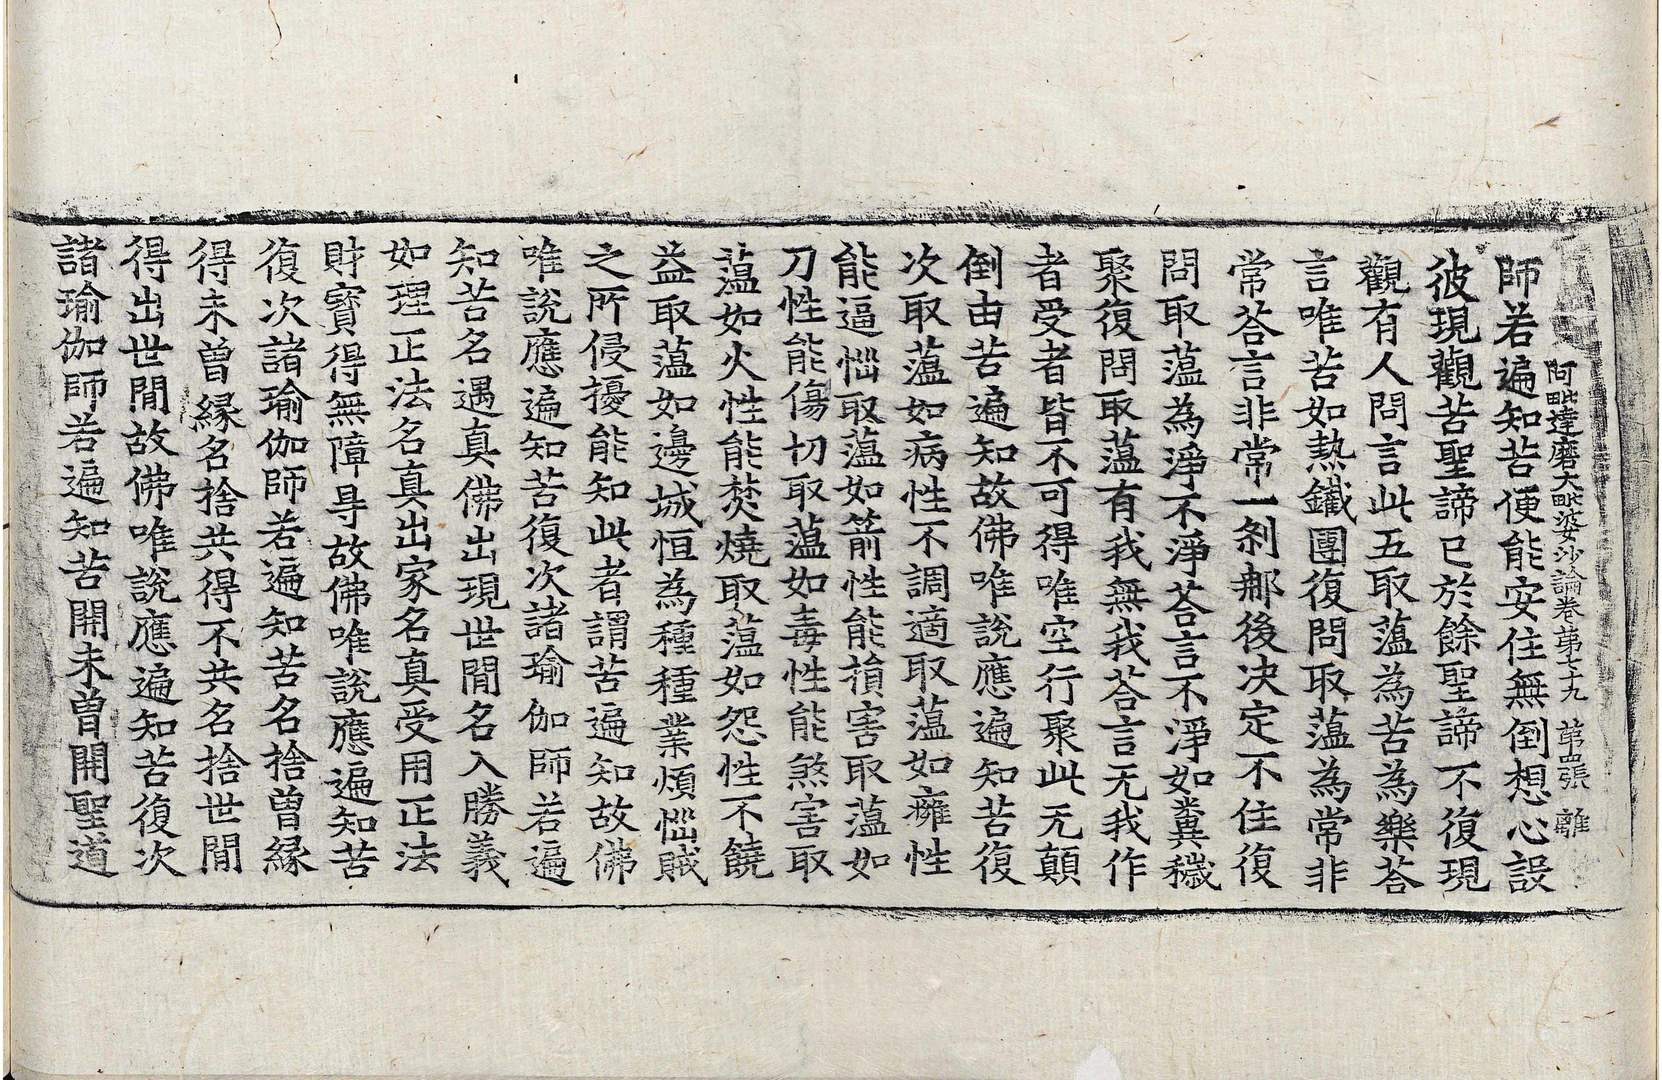 阿毗達磨大毗婆沙論卷第七十九 第四張 離
師若遍知苦便能安住無倒想心設
彼現觀苦聖諦已於餘聖諦不復現
觀有人問言此五取蕰為苦為樂荅
言唯苦如熱鐵團復問取蕰為常非
常荅言非常一剎𨚗後决定不住復
問取蕰為淨不淨荅言不淨如糞穢
聚復問取蕰有我無我荅言无我作
者受者皆不可得唯空行聚此无顛
倒由苦遍知故佛唯說應遍知苦復
次取蕰如病性不調適取蕰如癰性
能逼惱取蕰如箭性能損害取蕰如
刀性能傷切取蕰如毒性能煞害取
蕰如火性能焚燒取蕰如怨性不饒
益取蕰如邊城恒為種種業煩惱賊
之所侵擾能知此者謂苦遍知故佛
唯說應遍知苦復次諸瑜伽師若遍
知苦名遇真佛出現世閒名入勝義
如理正法名真出家名真受用正法
財寳得無障㝵故佛唯說應遍知苦
復次諸瑜伽師若遍知苦名捨曾緣
得未曾緣名捨共得不共名捨世閒
得出世閒故佛唯說應遍知苦復次
諸瑜伽師若遍知苦開未曾開聖道